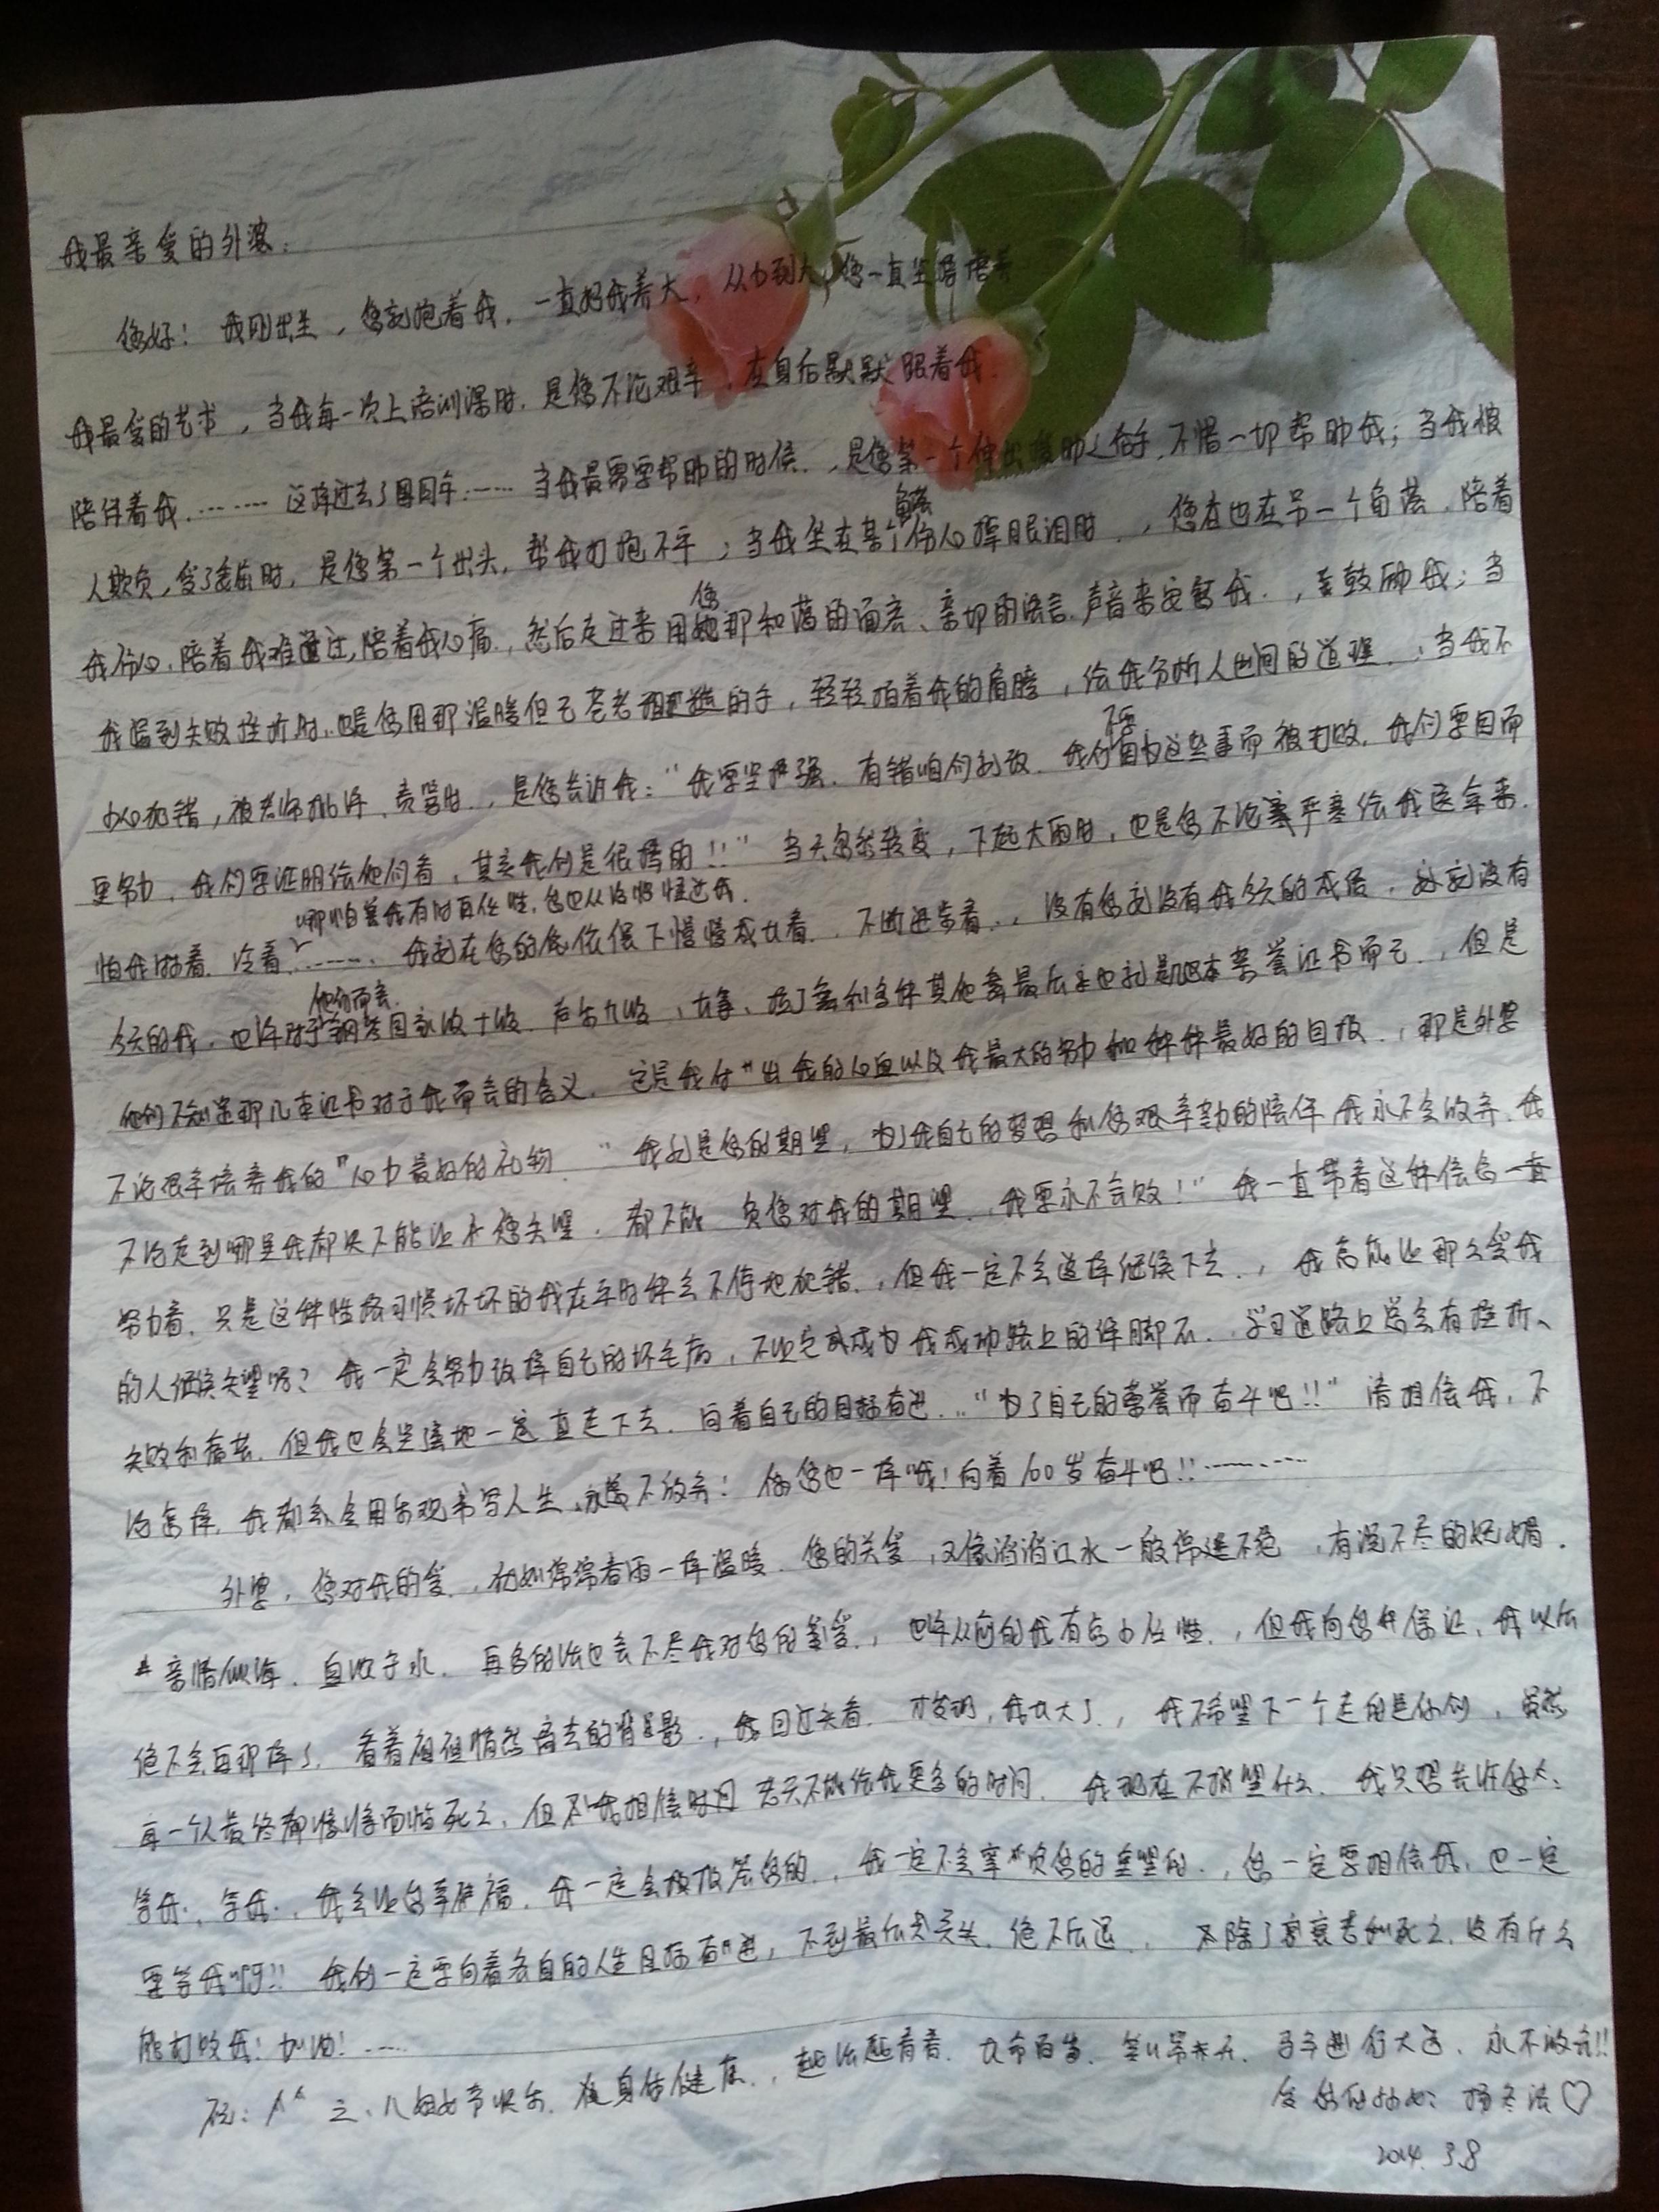 我最亲爱的外婆：
您好！我刚出生，您就抱着我，一直把我养大，从小到大，您一直坚持培养
我最爱的艺术，当我每一次上培训课时，是您不论艰辛，在身后默默跟着我
陪伴着我………这样过去了……当我最需要帮助的时候，是您第一个伸出援助之手，不惜一切帮助我；当我被
人欺负，受了委屈时，是您第一个出头，帮我打抱不平；当我坐在某个角落伤心掉眼泪时，您在也在另一个角落，陪着
我伤心，陪着我难过，陪着我心痛，然后走过来用您那和蔼的面容、亲切的语言声音来安慰我，鼓励我；当
我遇到失败挫折时，也是您用那温暖但已苍老粗糙的手，轻轻拍着我的肩膀，给我分析人世间的道理，当我不
小心犯错，被老师批评、责骂时，是您告诉我："我要坚强，有错咱们就改，我们不要因为这些事而被打败，我们要因而
更努力，我们要证明给他们看，其实我们是很棒的！！"当天忽然转变，下起大雨时，也是您不论严寒给我送伞来，
哪怕是我有时再任性，您也从没恨过我
怕我淋着、冷着……我就在您的依偎下慢慢成长着，不断进步着，没有您就没有我今天的成绩，就没有
今天的我，也许对于他们而言，钢琴国家级十级、声乐九级，古筝，也就是几本荣誉证书而已，但是
他们不知道那几本证书对于我而言的含义，它是我付出我的心血以及我最大的努力和最好的回报，那是外婆
不论艰辛培养我的心力最好的礼物"我就是您的期望，为了我自己的梦想和您艰辛的陪伴我永不会放弃，我
不论走到哪里我都决不能让您失望，都不能负您对我的期望，我要永不言败！"我一直带着这种信念一直
努力着，只是这种性格习惯坏坏的我在平时会不停地犯错，但我一定不会这样继续下去，我怎能让那么爱我
的人继续失望呢？我一定会努力改掉自己的坏毛病，不让它成为我成功路上的绊脚石，学习道路上总会有挫折、
失败和痛苦，但我也会坚强地一直走下去，向着自己的目标前进，"为了自己的荣誉而奋斗吧！！"请相信我，不
论怎样，我都会用乐观书写人生，永远不放弃！您也一样哦！向着100岁奋斗吧！！………
外婆，您对我的爱，犹如绵绵春雨一样温暖，您的关爱，又像滔滔江水一般绵延不绝，有说不尽的
亲情似海，血浓于水，再多的话也言不尽我对您的爱，也许从前的我有点小任性，但我向您保证，我以后
绝不会再那样了，看着祖祖悄然离去的背影，我回过头看，才发现，我长大了，我不希望下一个走的是你们，虽然
每一个人最终都慢慢面临死亡，但我相信老天不能给我更多的时间，我现在不指望什么，我只想告诉您：
等我，等我，我会让您幸福，我一定会报答您的，我一定不会辜负您的重望的，您一定要相信我，也一定
要等我啊！！我们一定要向着各自的人生目标前进，不到最后头，绝不后退，除了衰老和死亡，没有什么
能打败我！加油！……
祝：三八妇女节快乐，身体健康，越活越青春，长命百岁，笑口常开，永不放弃！！
爱您的孙女：♡
2014.3.8